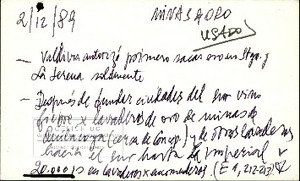 2/12/89
MINAS ORO
USADO
— Valdivia autorizó primero sacar oro en Stgo. y
La Serena solamente
— Después de fundar ciudades del sur vino
fiebre x lavaderos de oro de minas de
(cerca de Concep.) y de otros lavaderos
hacia el sur hasta la Imperial x
20.000 is en lavaderos x encomenderos (E 1, 212-213)